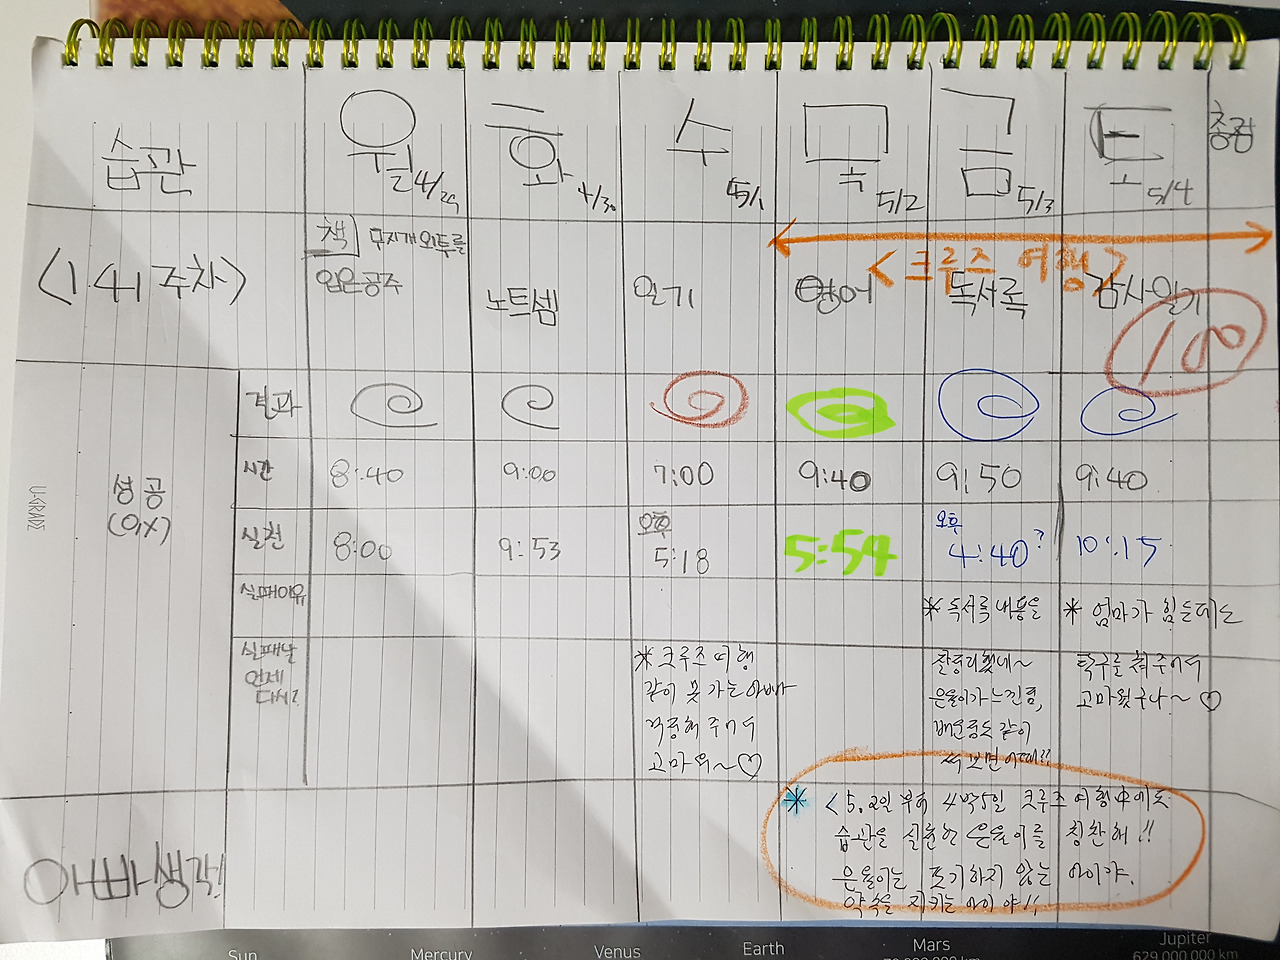 습관 월 4/29 화 4/30 수 5/1 목 5/2 금 5/3 토 5/4 총점
<크루즈 여행>
<141주차> 책 무지개 외투를
입은공주 노트셈 일기 영어 독서록 감사일기
100
결과
시간 8:40 9:00 7:00 9:40 9:50 9:40
성공
(O,X)
오후 오후
실천 8:00 9:53 5:18 5:54 4:40? 10:15
실패이유
* 독서록 내용을 * 엄마가 힘든데도
실패날
언제
다시?
* 크루즈 여행 잘 정리했네~ 탁구를 쳐 주어서
같이 못 가는 아빠 은율이가 느낀점, 고마웠구나~♡
걱정해 주어서 배운점도 같이
고마워~♡ 써 보면 어때??
아빠생각!
* <5.2일 부터 4박5일 크루즈 여행中에도
습관을 실천한 은율이를 칭찬해!!
은율이는 포기하지 않는 아이야.
약속을 지키는 아이야!!
U-GRADE
Sun Mercury Venus Earth Mars Jupiter
629 000 000 km